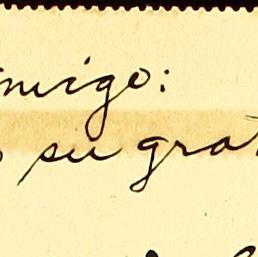 amigo:
su grat